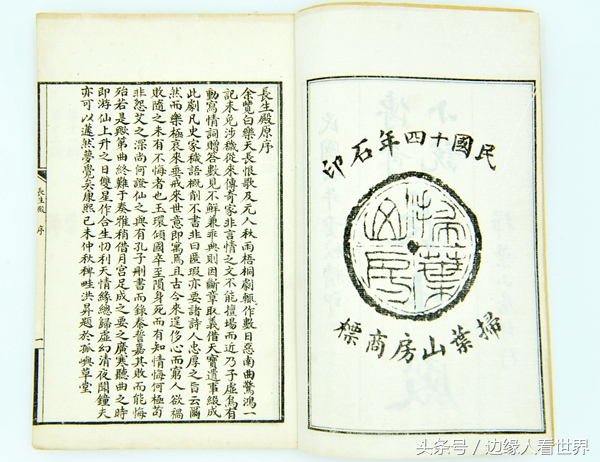 民國十四年石印
掃葉
山房
掃葉山房商標
長生殿原序
余覽白樂天長恨歌及元人秋雨梧桐劇輒作數日惡南曲驚鴻一
記未免涉穢從來傳奇家非言情之文不能擅場而近乃子虛烏有
動寫情詞贈答數見不鮮兼乖典則因斷章取義借天寶遺事綴成
此劇凡史家穢語概削不書非曰匿瑕亦要諸詩人忠厚之旨云爾
然而樂極哀來垂戒來世意即寓焉且古今來逞侈心而窮人欲禍
敗隨之未有不悔者也玉環傾國卒至隕身死而有知情悔何極苟
非怨艾之深尚何證仙之與有孔子刪書而錄秦誓嘉其敗而能悔
殆若是歟第曲終難于奏雅稍借月宮足成之要之廣寒聽曲之時
即游仙上升之日雙星作合生忉利天情緣總歸虛幻清夜聞鐘夫
亦可以蘧然夢覺矣康熙己未仲秋稗畦洪昇題於孤嶼草堂
長生殿 序
一
头条号/边缘人看世界